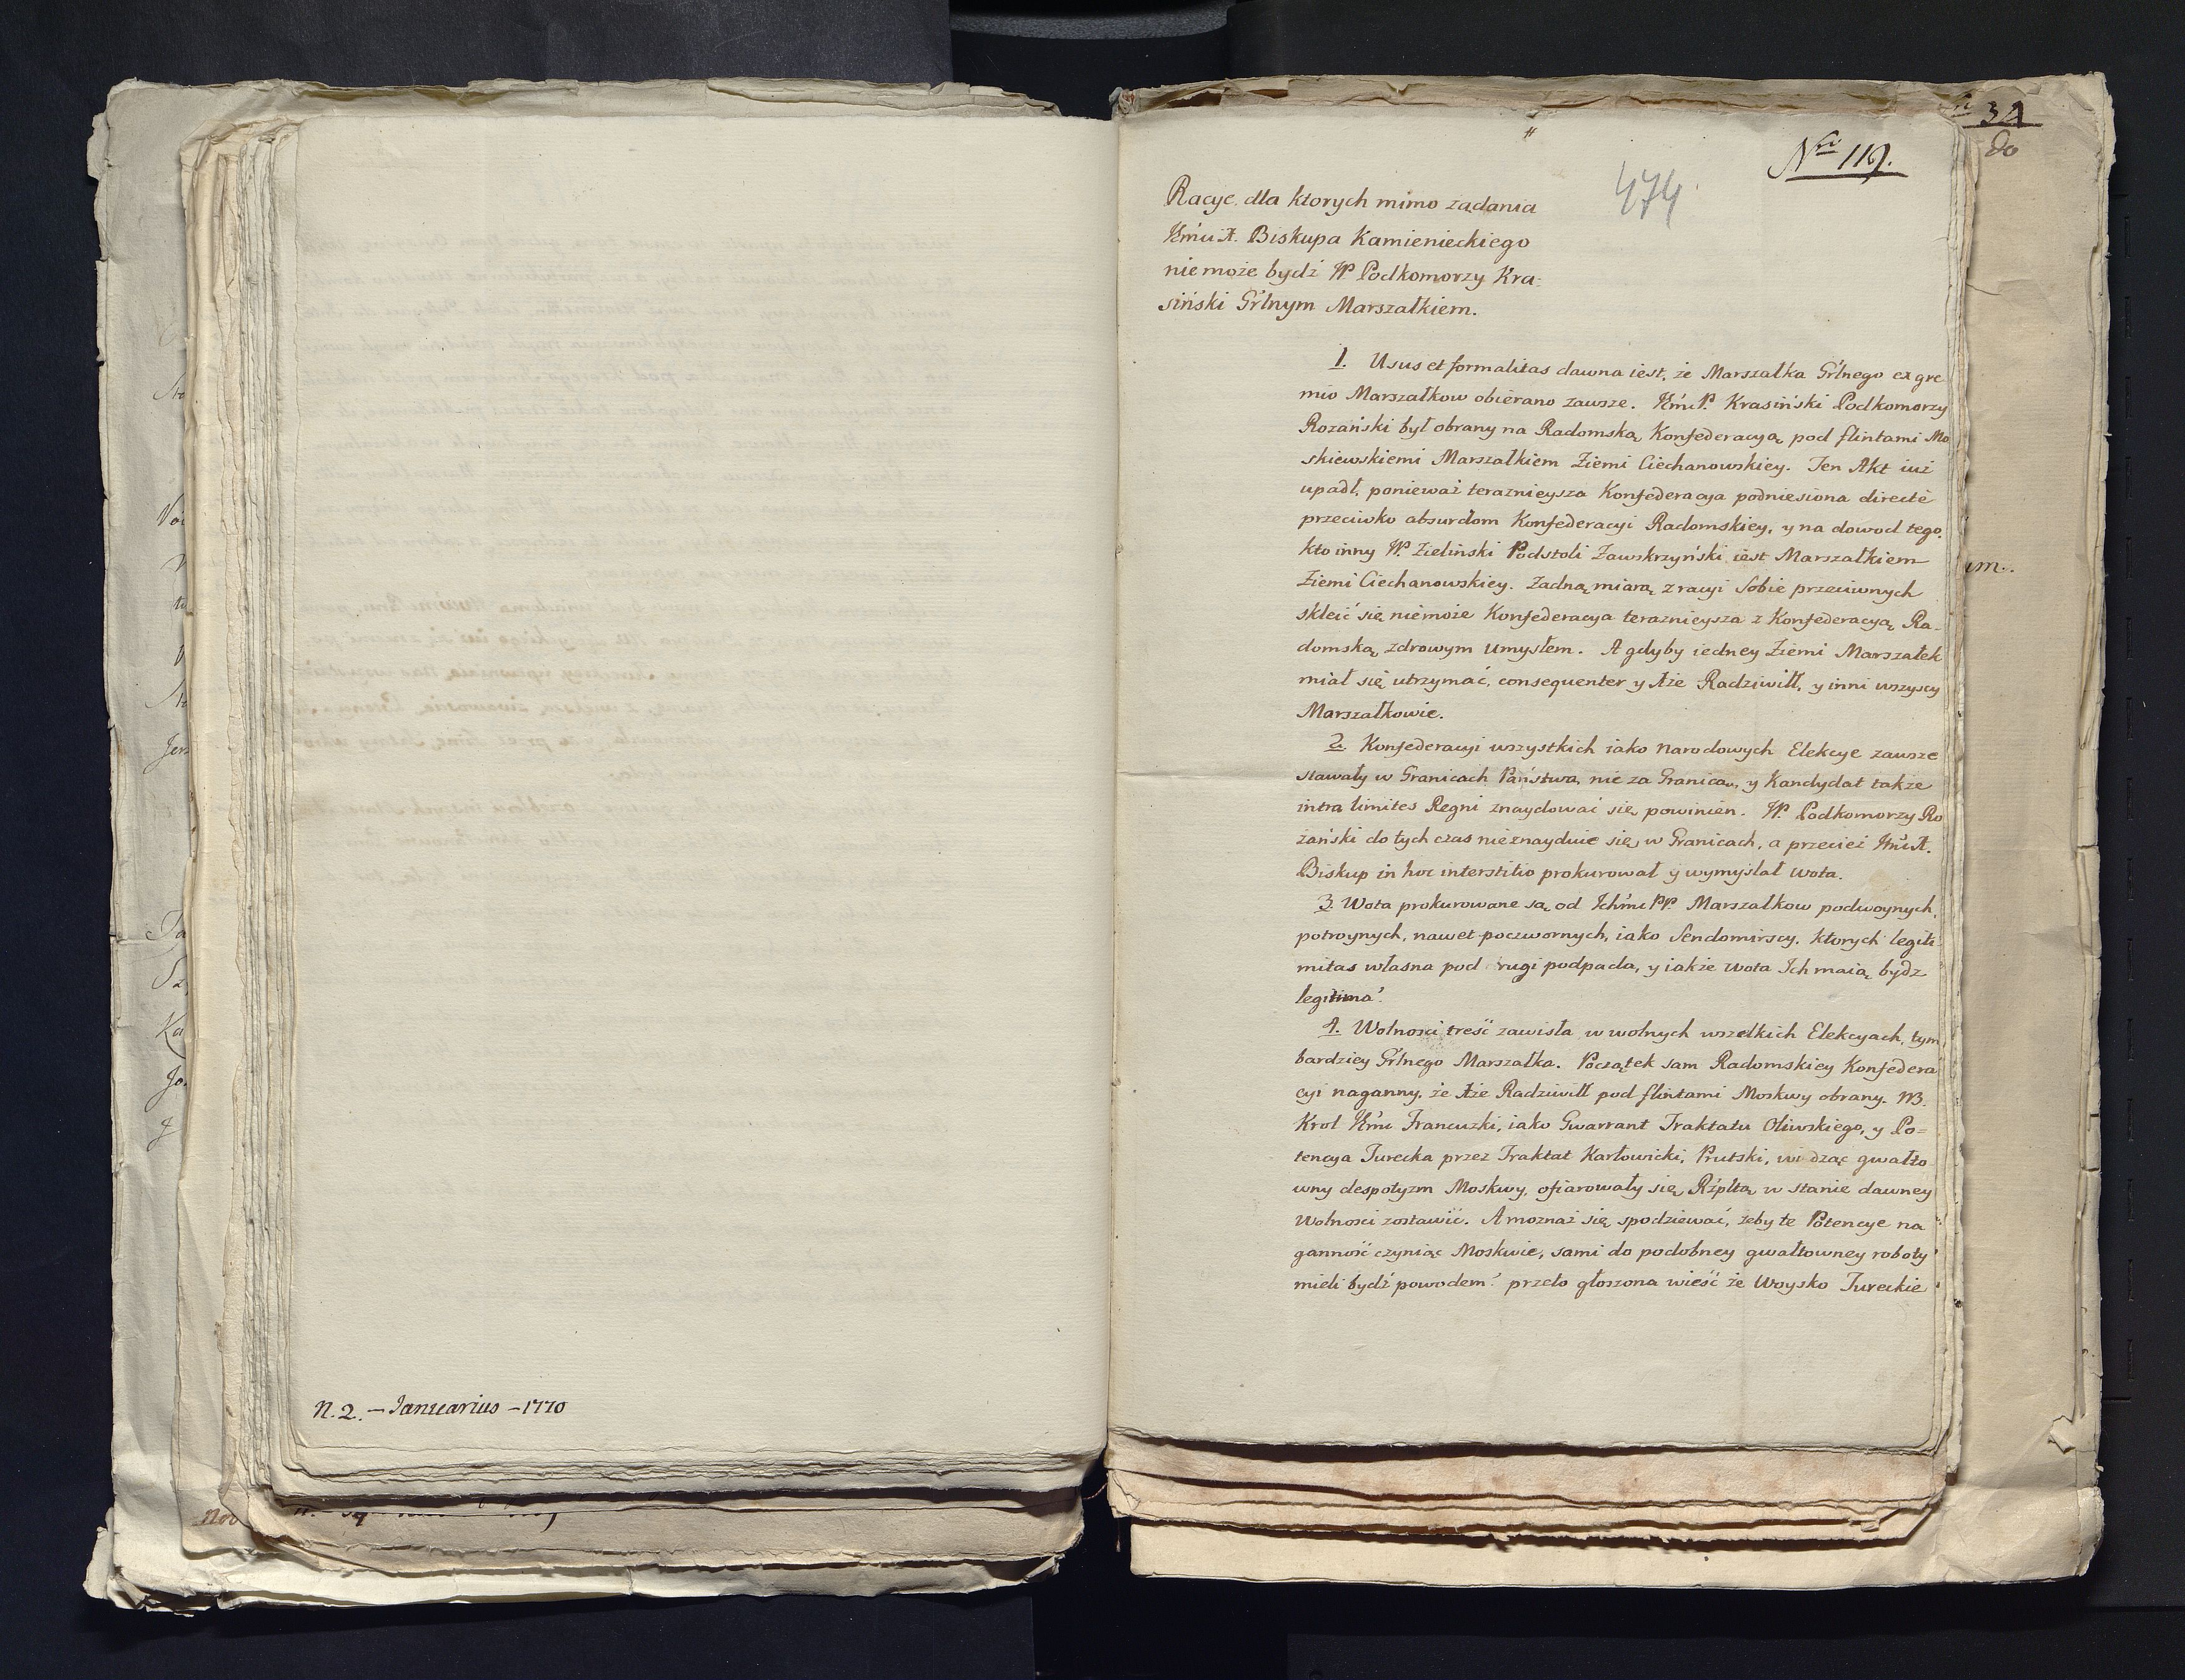 N. 2. – Januarius – 1770
34
80
Nro 119.
474.
Racye, dla ktorych mimo żądania
Jm̃ci X. Biskupa Kamienieckiego
nie może bydź W. Podkomorzy Kra:
siński Gr̃lnym Marszałkiem.
1. Usus et formalitas dawna iest, że Marszałka Gr̃lnego ex gre
mio Marszałkow obierano zawsze. Jm̃c P. Krasiński Podkomorzy
Rozański był obrany na Radomską Konfederacyą pod flintami Mo
skiewskiemi Marszałkiem Ziemi Ciechanowskiey. Ten Akt iuż
upadł, ponieważ teraznieysza Konfederacya podniesiona directè
przeciwko absurdom Konfederacyi Radomskiey, y na dowod tego,
kto inny W. Zieliński Podstoli Zawskrzyński iest Marszałkiem
Ziemi Ciechanowskiey. Zadną miarą z racyi Sobie przeciwnych
skleić się niemoże Konfederacya teraznieysza z Konfederacyą Ra-
domską zdrowym umysłem. A gdyby iedney Ziemi Marszałek
miał się utrzymać, consequenter y Xże Radziwiłł, y inni wszyscy
Marszałkowie.
2. Konfederacyi wszystkich iako Narodowych Elekcye zawsze
stawały w Granicach Państwa, nie za Granicą, y Kandydat także
intra limites Regni znaydować się powinien. W. Podkomorzy Ro
żański do tych czas nieznayduie się w Granicach, a przecież Jm̃ć X.
Biskup in hoc interstitio prokurował y wymyślał wota.
3. Wota prokurowane są od Ichm̃c PP. Marszałkow podwoynych,
potroynych, nawet poczwornych, iako Sendomirscy, ktorych legiti
mitas własna pod rugi podpada, y iakże wota Ich maią bydz
legitima?
4. Wolnosci treść zawisła w wolnych wszelkich Elekcyach, tym
bardziey Gr̃lnego Marszałka. Początek sam Radomskiey Konfedera
cyi naganny, że Xże Radziwiłł pod flintami Moskwy obrany. NB.
Krol Jm̃c Francuzki, iako Gwarrant Traktatu Oliwskiego, y Po=
tencya Turecka przez Traktat Karłowicki, Prutski, widząc gwałto
wny despotyzm Moskwy, ofiarowały się Rz̃pltą w stanie dawney
Wolnosci zostawić. A moznaż się spodziewać, żeby te Potencye na
ganność czyniąc Moskwie, sami do podobney gwałtowney roboty
mieli bydź powodem? przeto głoszona wieść że Woysko Tureckie